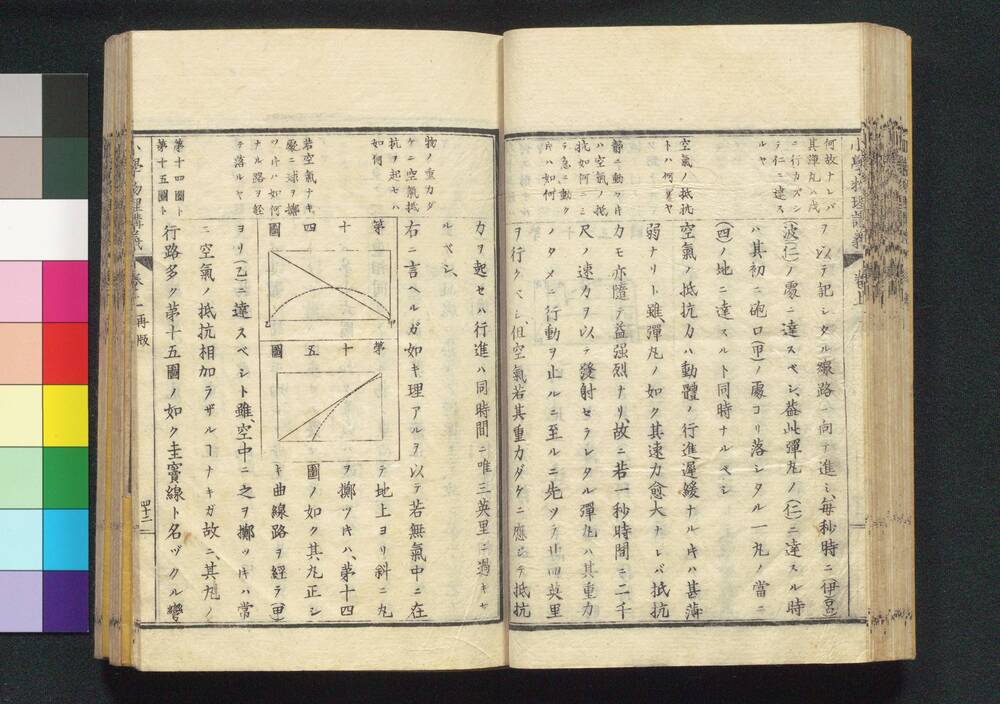 何故ナレバ
其彈丸ハ茂
ニ行カズシ
テ仁ニ達ス
ルヤ
ヲ以テ記シタル線路ニ向テ進ミ、毎秒時ニ伊豆
(波)(仁)ノ處ニ達スベシ、蓋此彈丸ノ(仁)ニ達スル時
ハ其初ニ砲口(甲)ノ處ヨリ落シタル一丸ノ當ニ
(四)ノ地ニ達スルト同時ナルベシ
空氣ノ抵抗
トハ何ゾヤ
空氣ノ抵抗力ハ動體ノ行進遲緩ナルキハ甚薄
弱ナリト雖彈丸ノ如ク其速力愈大ナレバ抵抗
靜ニ動ク𪜈
ハ空氣ノ抵
抗如何ニ
テ急ニ動ク
キハ如何
カモ亦隨テ益强烈ナリ、故ニ若一秒時間ニ二千
尺ノ速力ヲ以テ發射セラレタル彈丸ハ其重力
ノタメニ行動ヲ止ルニ至ルニ先ツテ廿四英里
ヲ行クベシ、但空氣若其重力ダケニ應ジテ抵抗
物ノ重力ダ
ケニ空氣抵
抗ヲ起セハ
如何
力ヲ起セハ行進ハ同時間ニ唯三英里ニ過キサ
ルベシ、
右ニ言ヘルガ如キ理アルヲ以テ若無氣中ニ在
テ地上ヨリ斜ニ丸
ヲ擲ツキハ、第十四
第十四圖
第十五圖
若空氣ナキ
處ニ球ヲ擲
ツキハ如何
ナル路ヲ經
テ落ルヤ
圖ノ如ク其丸正シ
キ曲線路ヲ經テ(甲)
ヨリ(乙)ニ達スベシト雖、空中ニ之ヲ擲ツキハ常
ニ空氣ノ抵抗相加ラザルコナキガ故ニ、其丸ノ
第十四圖ト
第十五圖ト
行路多ク第十五圖ノ如ク圭竇線ト名ヅクル彎
小學物理講義
卷之一
再版
四十二